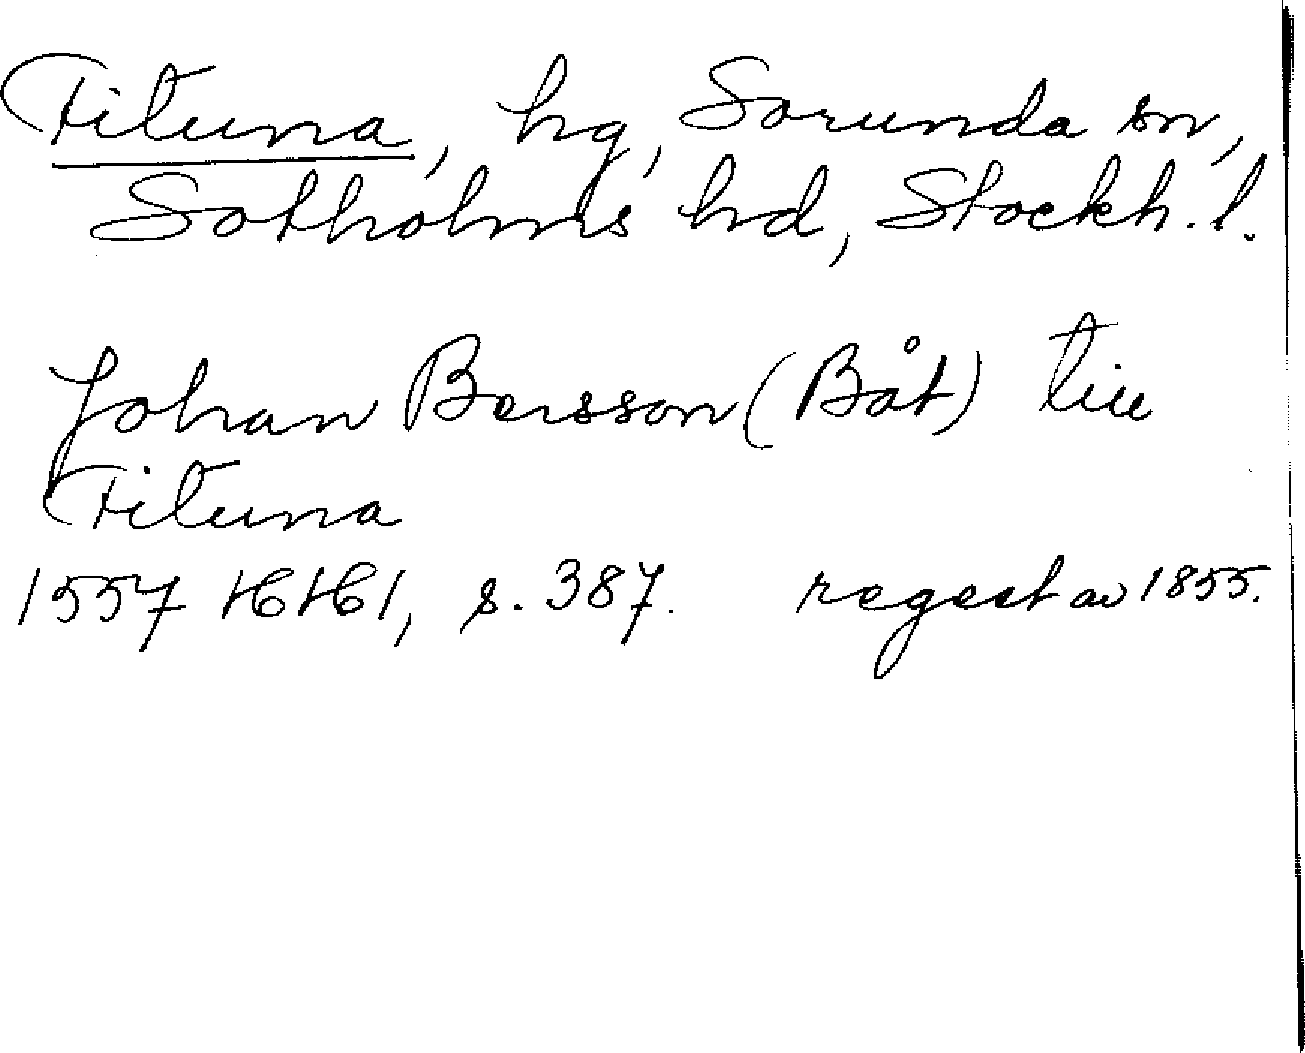 Fituna, hg, Sorunda sn,
Sotholms hd, Stockh. l.
Johan Bersson (Båt) till
Fituna
1557 HH1, s. 387. regest av 1855.